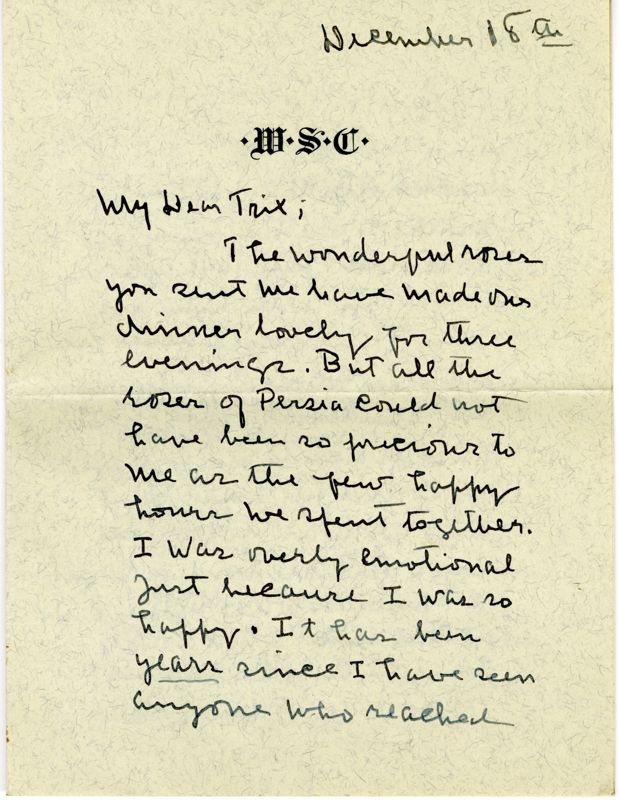 December 18th
·W·S·C·
My Dear Trix;
The wonderful roses
you sent me have made our
dinner lovely for three
evenings. But all the
roses of Persia could not
have been so precious to
me as the few happy
hours we spent together.
I was overly emotional
just because I was so
happy. It has been
years since I have seen
anyone who reached